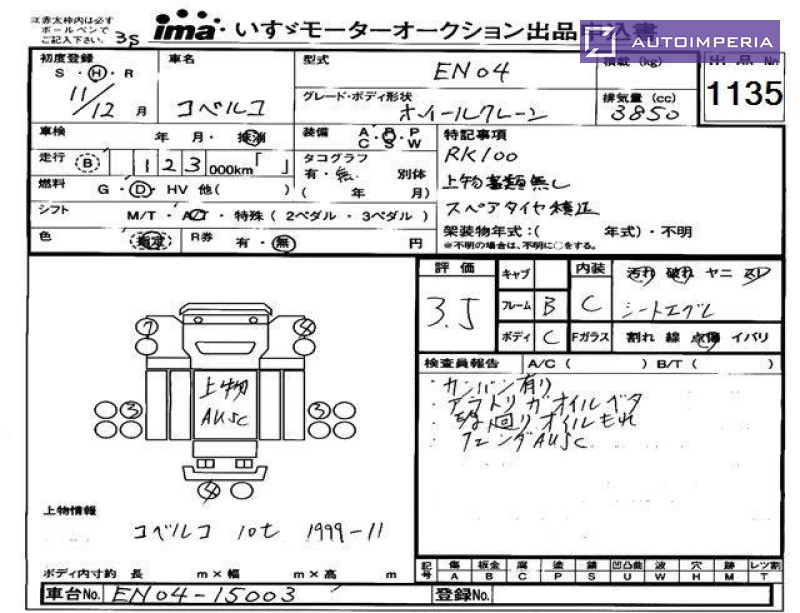 ※赤太枠内は必ず
ボールペンで
ご記入下さい。
3S
ima いすゞモーターオークション出品申込書
AUTOIMPERIA
初度登録
S・H・R
11/12 月
車名
コベルコ
型式
EN04
積載 (kg)
出品 No
1135
グレード・ボディ形状
ホイールクレーン
排気量 (cc)
3850
車検
年 月・抹消
装備 A・R・P
C S W
特記事項
RK100
上物書類無し
スペアタイヤ積込
走行 B 1 2 3 000km「 」
タコグラフ
有・無 別体
( 年 月)
燃料
G・D・HV 他( )
シフト
M/T・AT・特殊(2ペダル・3ペダル)
架装物年式:( 年式)・不明
※不明の場合は、不明に○をする。
色
R券 有・無 円
評価
3.5
キャブ
フレーム B
ボディ C
内装
C
汚れ 破れ ヤニ スレ
Fガラス 割れ 線 点傷 イバリ
検査員報告 A/C( ) B/T( )
・カンバン有り
・アウトリガオイルベタ
オイルモれ
・フェンダAUSC
7 4
3 3
4
上物
AUSC
上物情報
コベルコ 10t 1999-11
ボディ内寸約 長 m×幅 m×高 m
記号 傷 板金 腐 塗 錆 凹凸歯 波 穴 跡 レンズ割
A B C P S U W H M T
車台No. EN04-15003
登録No.